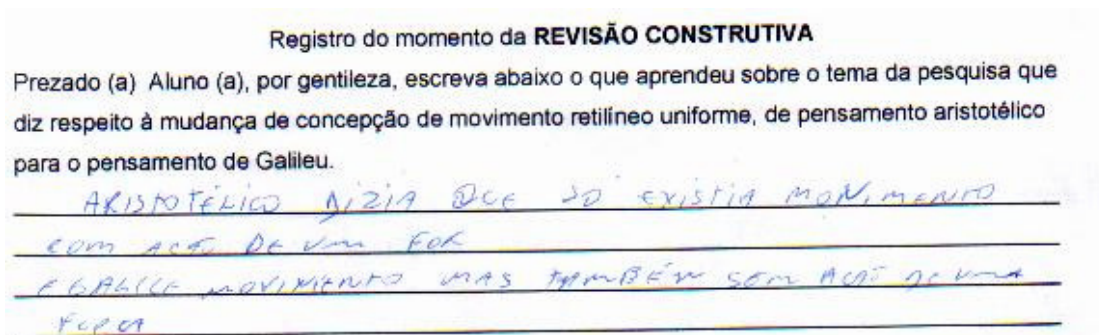 Registro do momento da REVISÃO CONSTRUTIVA
Prezado (a) Aluno (a), por gentileza, escreva abaixo o que aprendeu sobre o tema da pesquisa que
diz respeito à mudança de concepção de movimento retilíneo uniforme, de pensamento aristotélico
para o pensamento de Galileu.
ARISTOTÉLICO DIZIA QUE SO EXISTIA MOVIMENTO
COM DE UM FOR
MOVIMENTO MAS TAMBÉM SEM DE UMA